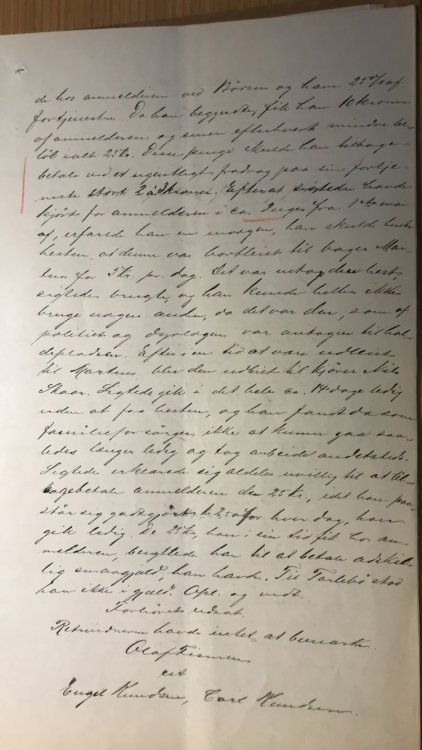 de hos anmelderen ved Børsen og havn 25 % af
fortjenesten. Da han begyndte, fik han 10 kroner
af anmelderen og senere efterhvert mindre be-
løb ialt 25 kr. Disse penge skulde han tilbage-
betale ved et ugentligt fradrag paa sin fortje-
neste stort 2 à 3 kroner. Efterat sigtede havde
kjørt for anmelderen i ca. uger fra 1ste mai
af, erfarede han en morgen, han skulde hente
hesten, at denne var bortleiet til bager Mar-
tens for 3 kr. pr. dag. Det var netop den hest
sigtede brugte, og han kunde heller ikke
bruge nogen anden, da det var den, som af
politiet og dyrlægen var antagen til hol-
depladsen. Efter i en tid at være udleiet
til Martens blev den udleiet til kjører Nils
Skaar. Sigtede gik i det hele ca. 14 dage ledig
uden at faa hesten, og han fandt da som
familieforsørger ikke at kunne gaa saa-
ledes længer ledig og tog arbeide andetsteds.
Sigtede erklærede sig aldeles uvillig til at til-
bagebetale anmelderen de 25 kr., idet han paa-
står sig godtgjort kr. 2,50 for hver dag, han
gik ledig. De 25 kr., han i sin tid fik hos an-
melderen, benyttede han til at betale adskil-
lig smaagjæld, han havde. Til stod
han ikke i gjæld. Opl. og vedt.
Forhøret sluttet
Retsvidnerne havde intet at bemærke.
Olaf
Engel Knudsen, Carl Knudsen.